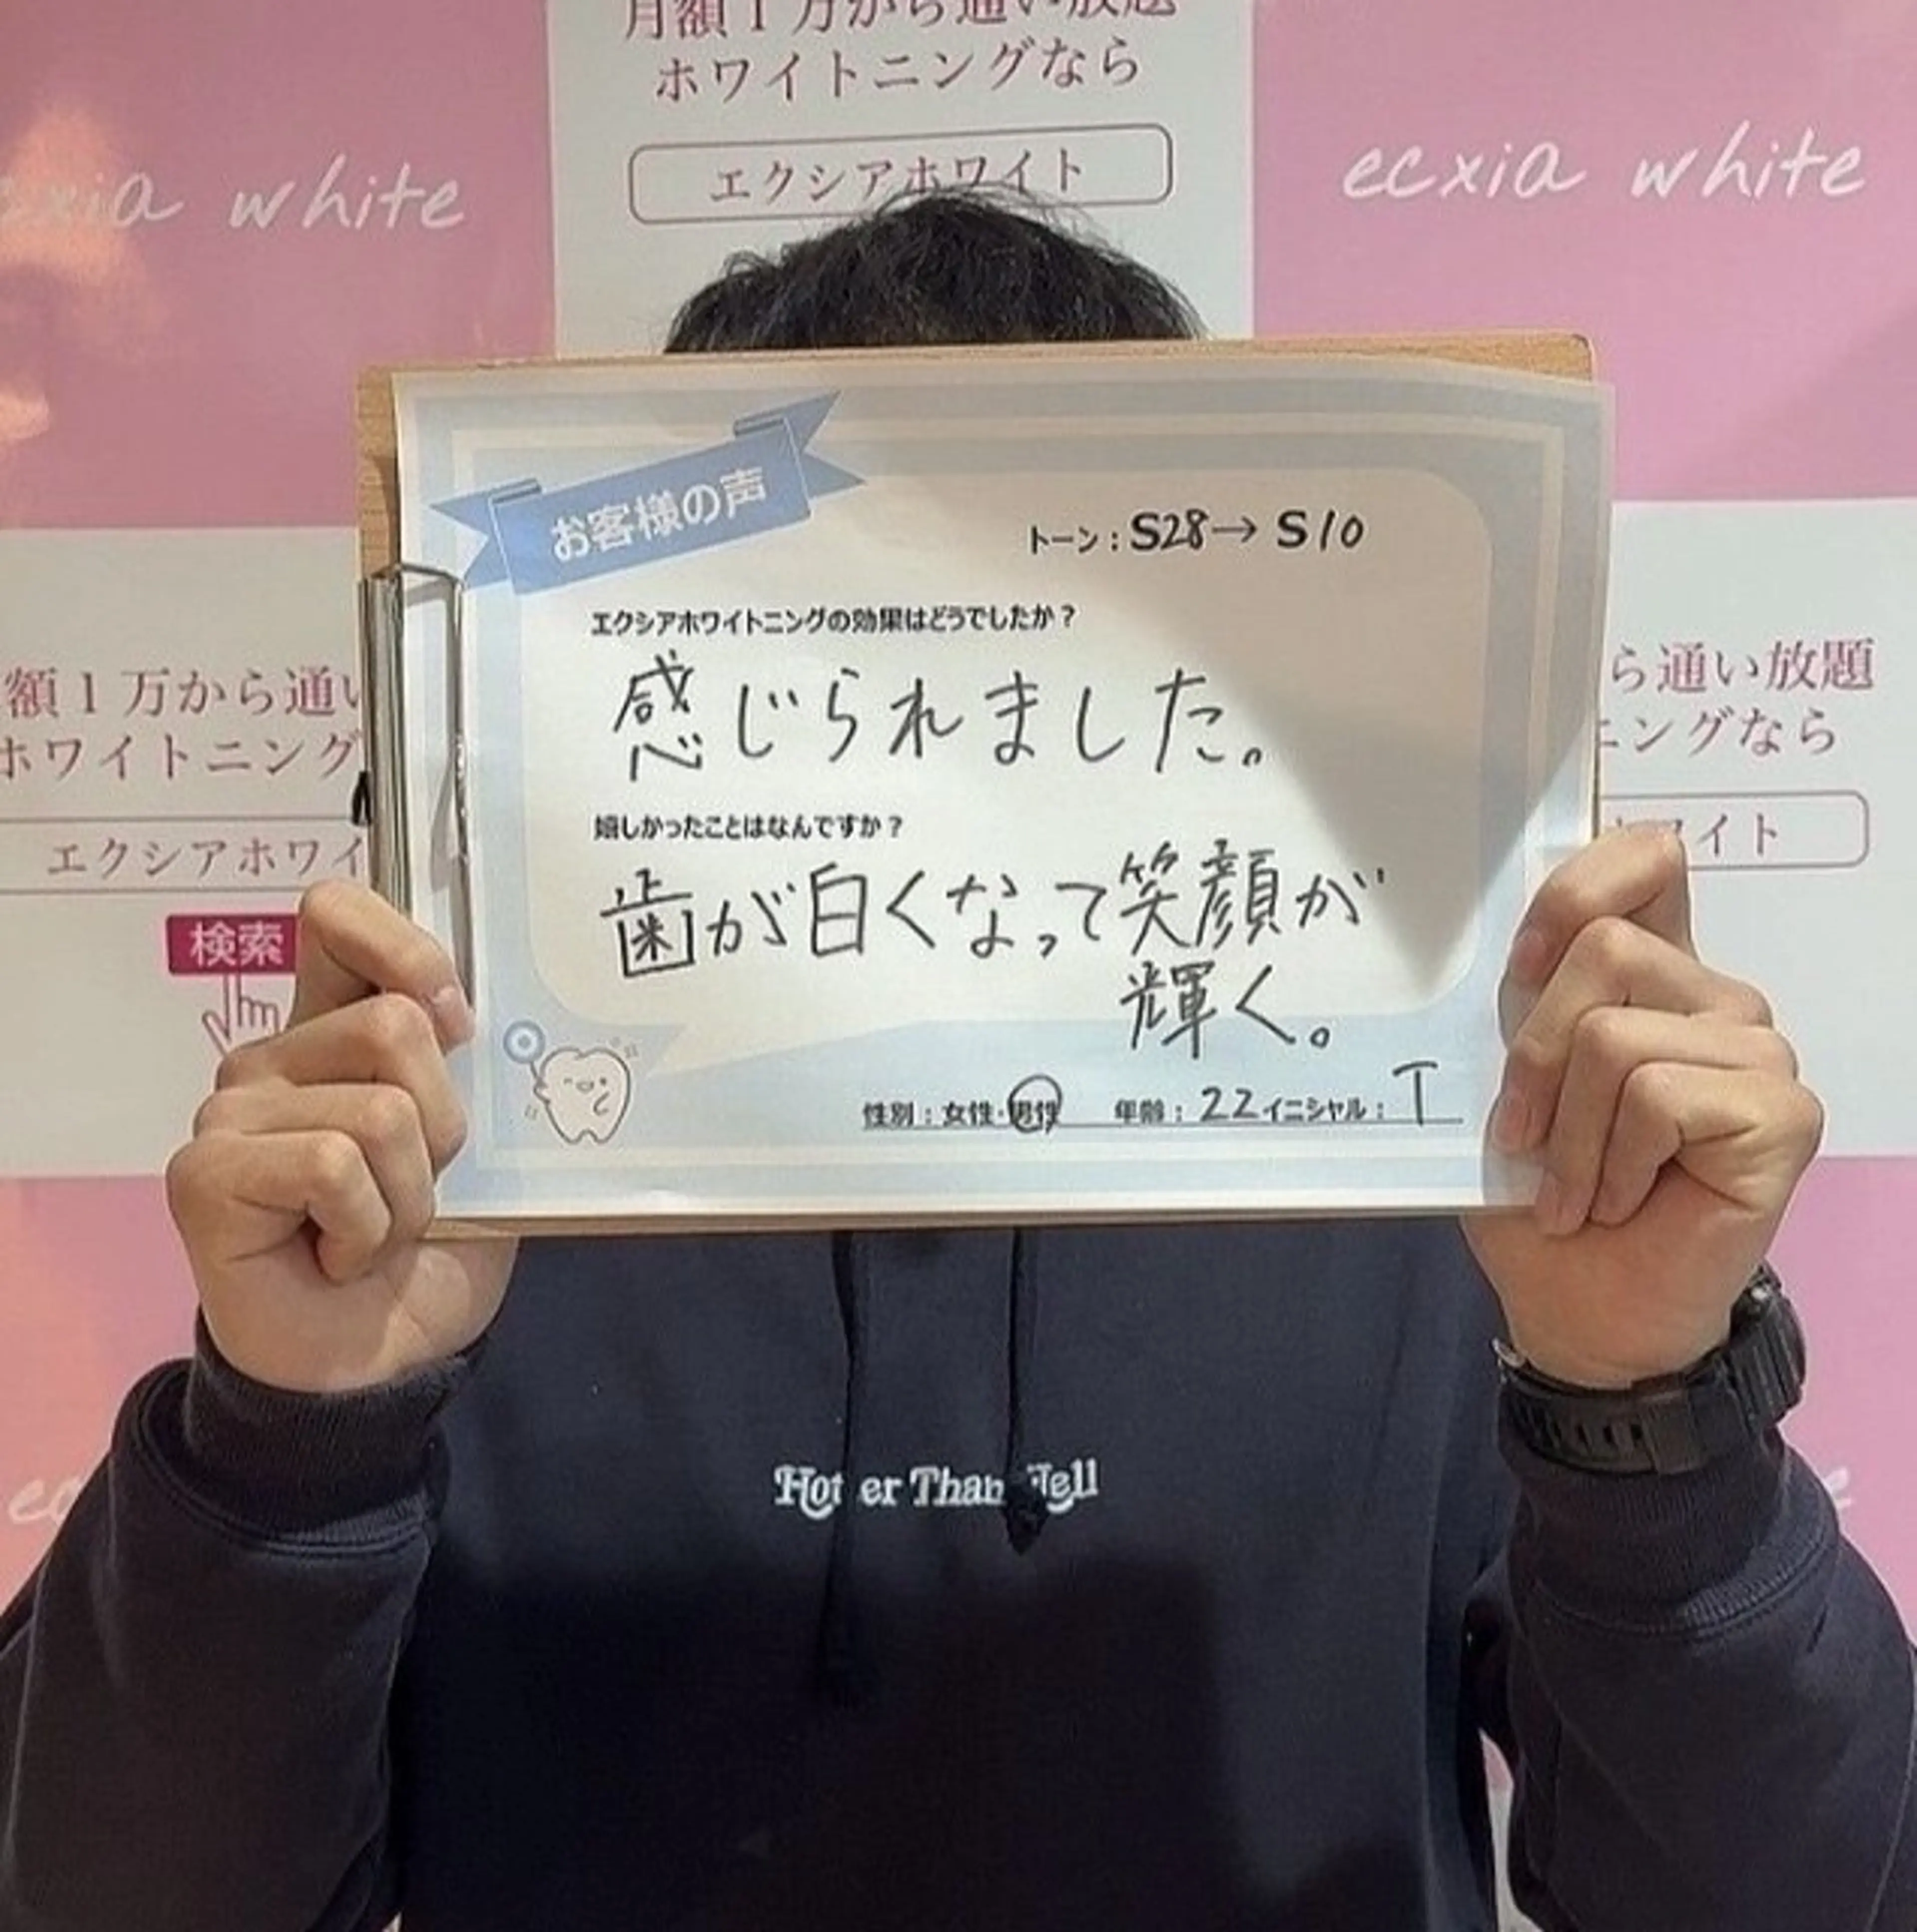 月額1万から通い放題
ホワイトニングなら
エクシアホワイト
white
ecxia white
お客様の声
トーン：S28→S10
エクシアホワイトニングの効果はどうでしたか？
感じられました。
嬉しかったことはなんですか？
歯が白くなって笑顔が
輝く。
性別：女性・男性 年齢：22 イニシャル：T
額1万から通い
ホワイトニング
エクシアホワイ
検索
ら通い放題
ニングなら
ワイト
Hotter Than Hell